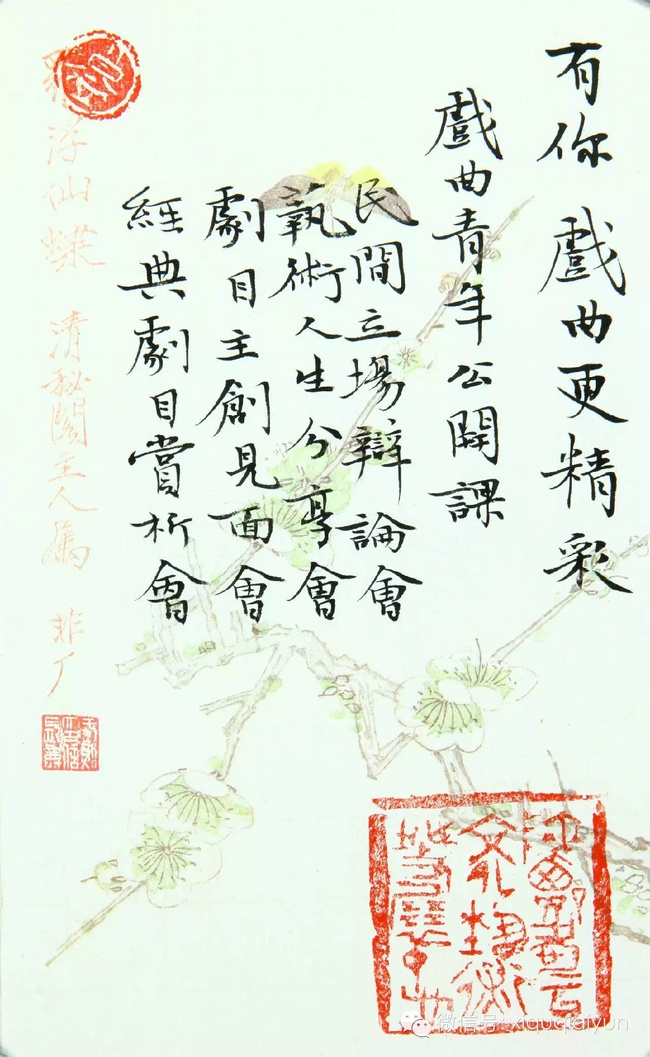 有你 戲曲更精彩
戲曲青年公開課
民間立場辯論會
埶術人生分享會
劇目主創見面會
經典劇目賞析會
羅浮仙蝶 清秘閣主人屬 非厂
微信号: